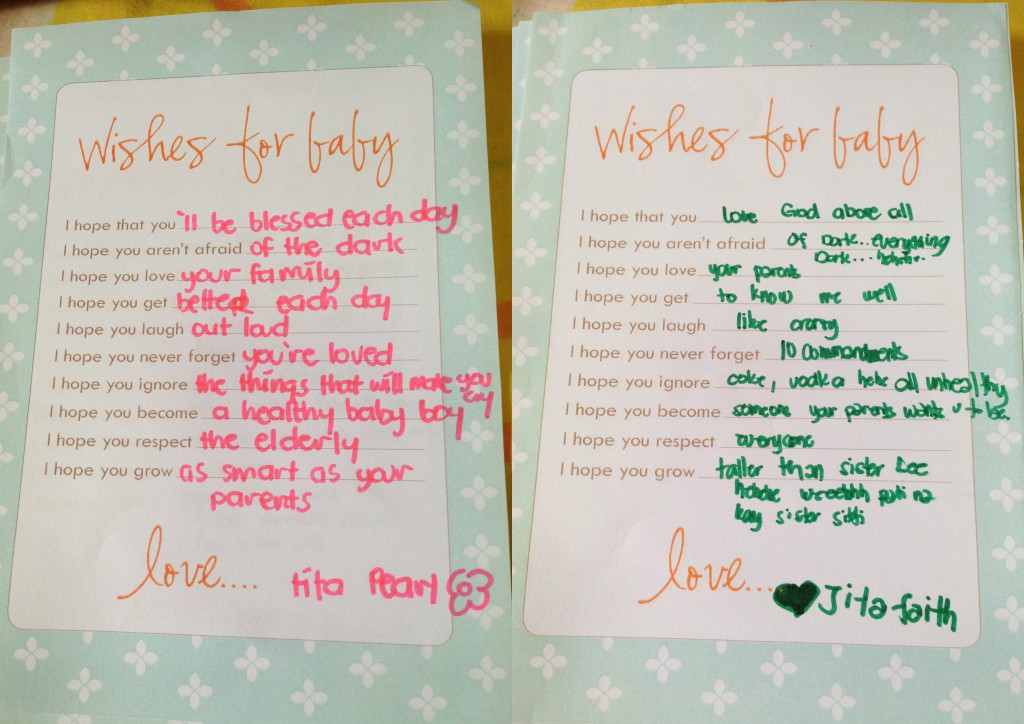 Wishes for baby
I hope that you 'll be blessed each day
I hope you aren't afraid of the dark
I hope you love your family
I hope you get better each day
I hope you laugh out loud
I hope you never forget you're loved
I hope you ignore the things that will make you
cry
I hope you become a healthy baby boy
I hope you respect the elderly
I hope you grow as smart as your
parents
love....
tita Pearl
Wishes for baby
I hope that you love God above all
I hope you aren't afraid of Dark... everything
Dark... hehehe..
I hope you love your parents
I hope you get to know me well
I hope you laugh like crazy
I hope you never forget 10 commandments
I hope you ignore coke, vodka hehe all unhealthy
I hope you become someone your parents wants u to be.
I hope you respect everyone
I hope you grow taller than sister Dee
hehehe pati na
kay sister sitti
love...
Jita faith